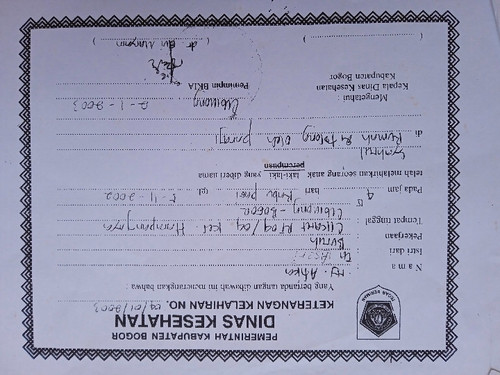 PEMERINTAH KABUPATEN BOGOR
DINAS KESEHATAN
KETERANGAN KELAHIRAN NO. 09/01/2003
Yang bertanda tangan dibawah ini menerangkan bahwa
N a m a : Ny
Istri dari :
Pekerjaan : Buruh
Tempat tinggal : Cikaret RT 04/09 Kel Harapanjaya
Cibinong - Bogor
Pada jam hari Rabu pagi tgl. 5-11-2002
telah melahirkan seorang anak laki-laki yang diberi nama
perempuan
Syahrul
di Rumah di tolong oleh paraji
Cibinong 2-1-2003
Mengetahui :
Kepala Dinas Kesehatan
Kabupaten Bogor
Pemimpin BKIA
( )
( dr )